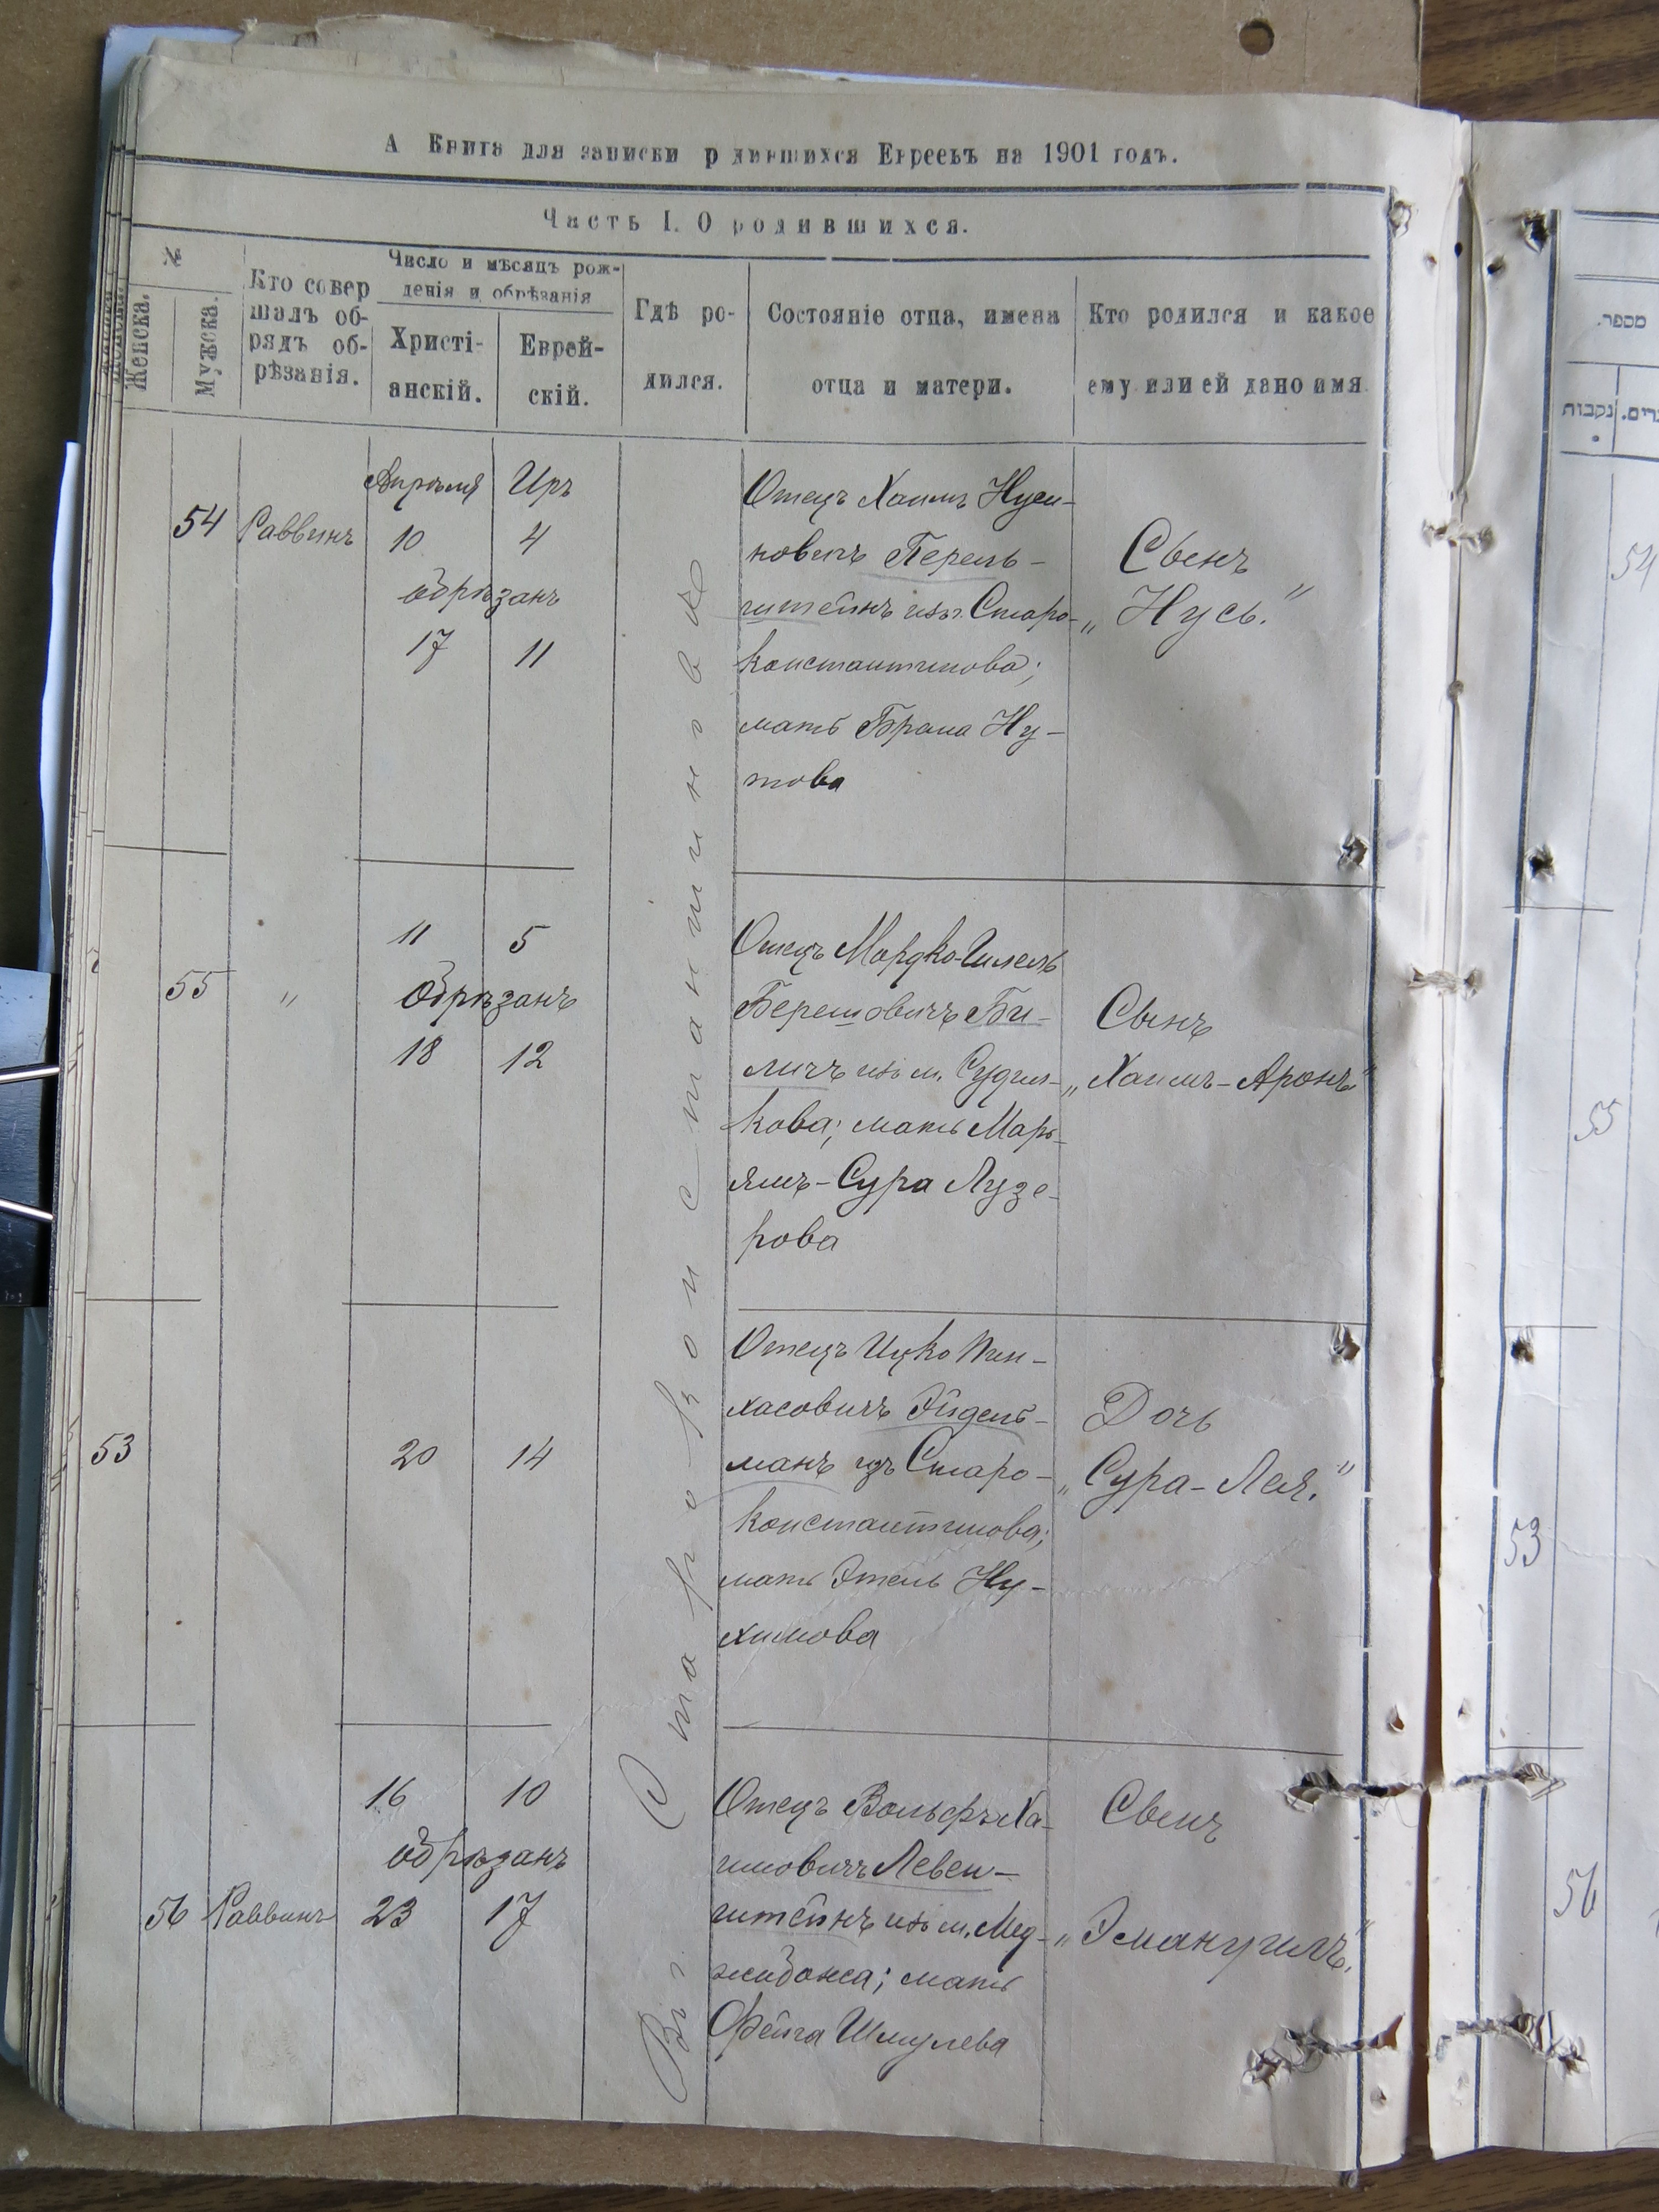 А Книга для записки родившихся Евреевъ на 1901 годъ.
Часть I. О родившихся.
№
Женска.
Мужска.
Кто совер
шалъ об-
рядъ об-
рѣзанія.
Число и мѣсяцъ рож-
денія и обрѣзанія
Христі-
анскій.
Еврей-
скій.
Гдѣ ро-
дился.
Состояніе отца, имена
отца и матери.
Кто родился и какое
ему или ей дано имя.
Въ Староконстантиновѣ
54
Раввинъ
Апрѣля
Иръ
10
4
обрѣзанъ
17
11
Отецъ Хаимъ Нуси-
новичъ Перель-
штейнъ изъ г. Старо-
константинова;
мать Брана Ну-
това
Сынъ
„Нусь."
55
"
11
5
Обрѣзанъ
18
12
Отецъ Мордко-Гилель
Берешовичъ Би-
личъ изъ м. Судил-
кова; мать Марь-
ямъ-Сура Лузе-
рова
Сынъ
„Хаимъ-Аронъ"
53
20
14
Отецъ Ицко Пин-
хасовичъ Эйдель-
манъ изъ Старо-
константинова;
мать Этель Ну-
химова
Дочь
„Сура-Лея."
56
Раввинъ
16
10
обрѣзанъ
23
17
Отецъ Вольфъ Ха-
имовичъ Левен-
штейнъ изъ м. Мед-
жибожа; мать
Фейга Шмулева
Сынъ
„Эмануилъ."
מספר.
נקבות
54
55
53
56